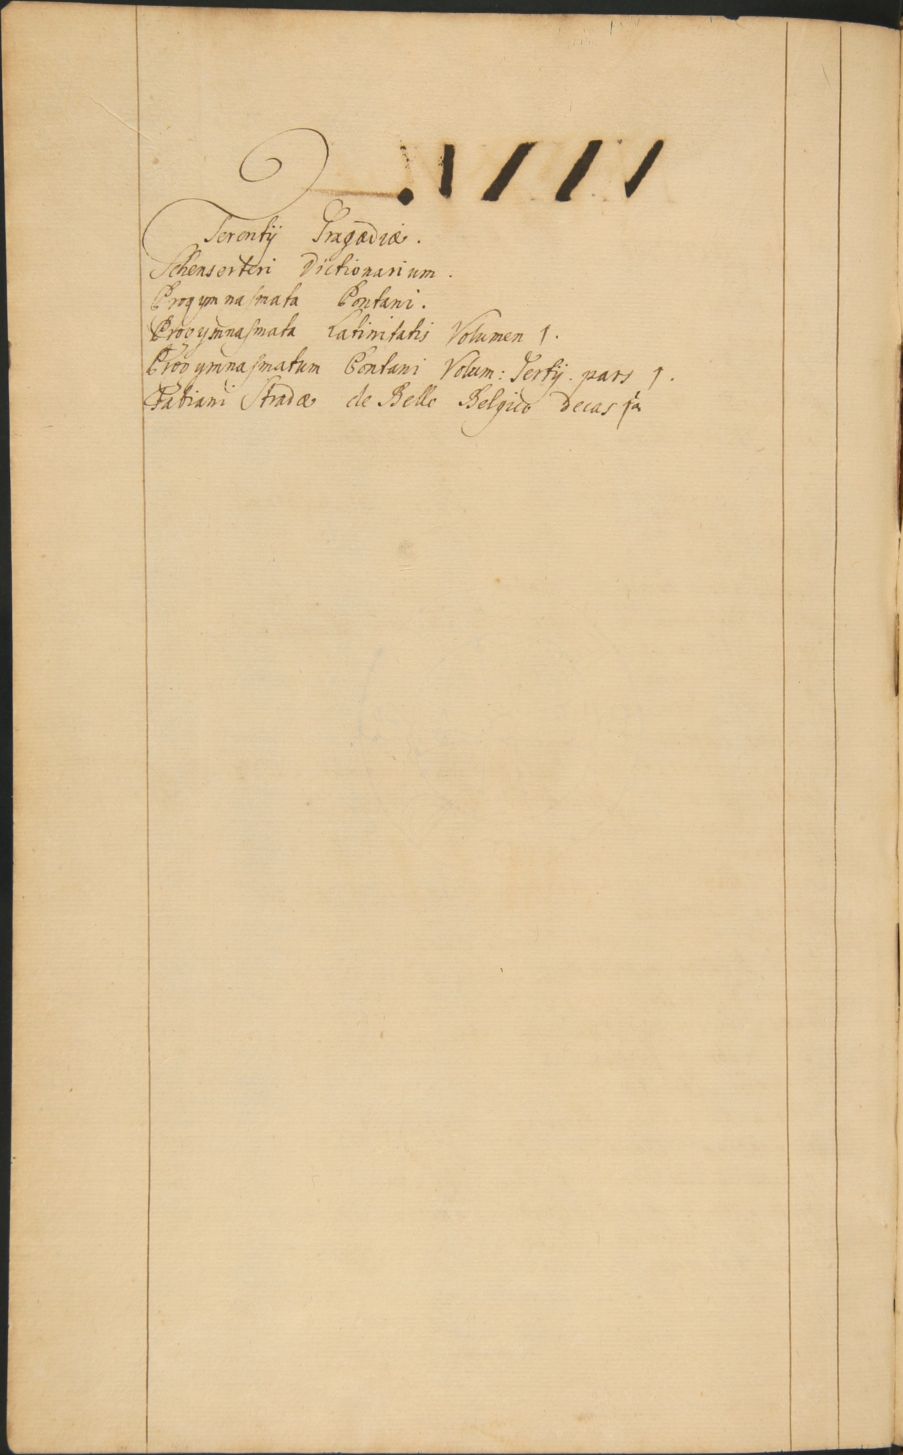 Terentij Tragædiæ.
Schensorteri Dictionarium.
Progymnasmata Pontani.
Progymnasmata Latinitatis Volumen 1.
Progymnasmatum Pontani Volum: Tertij. pars 1.
Fabiani Stradæ de Bello Belgico Decas 1a